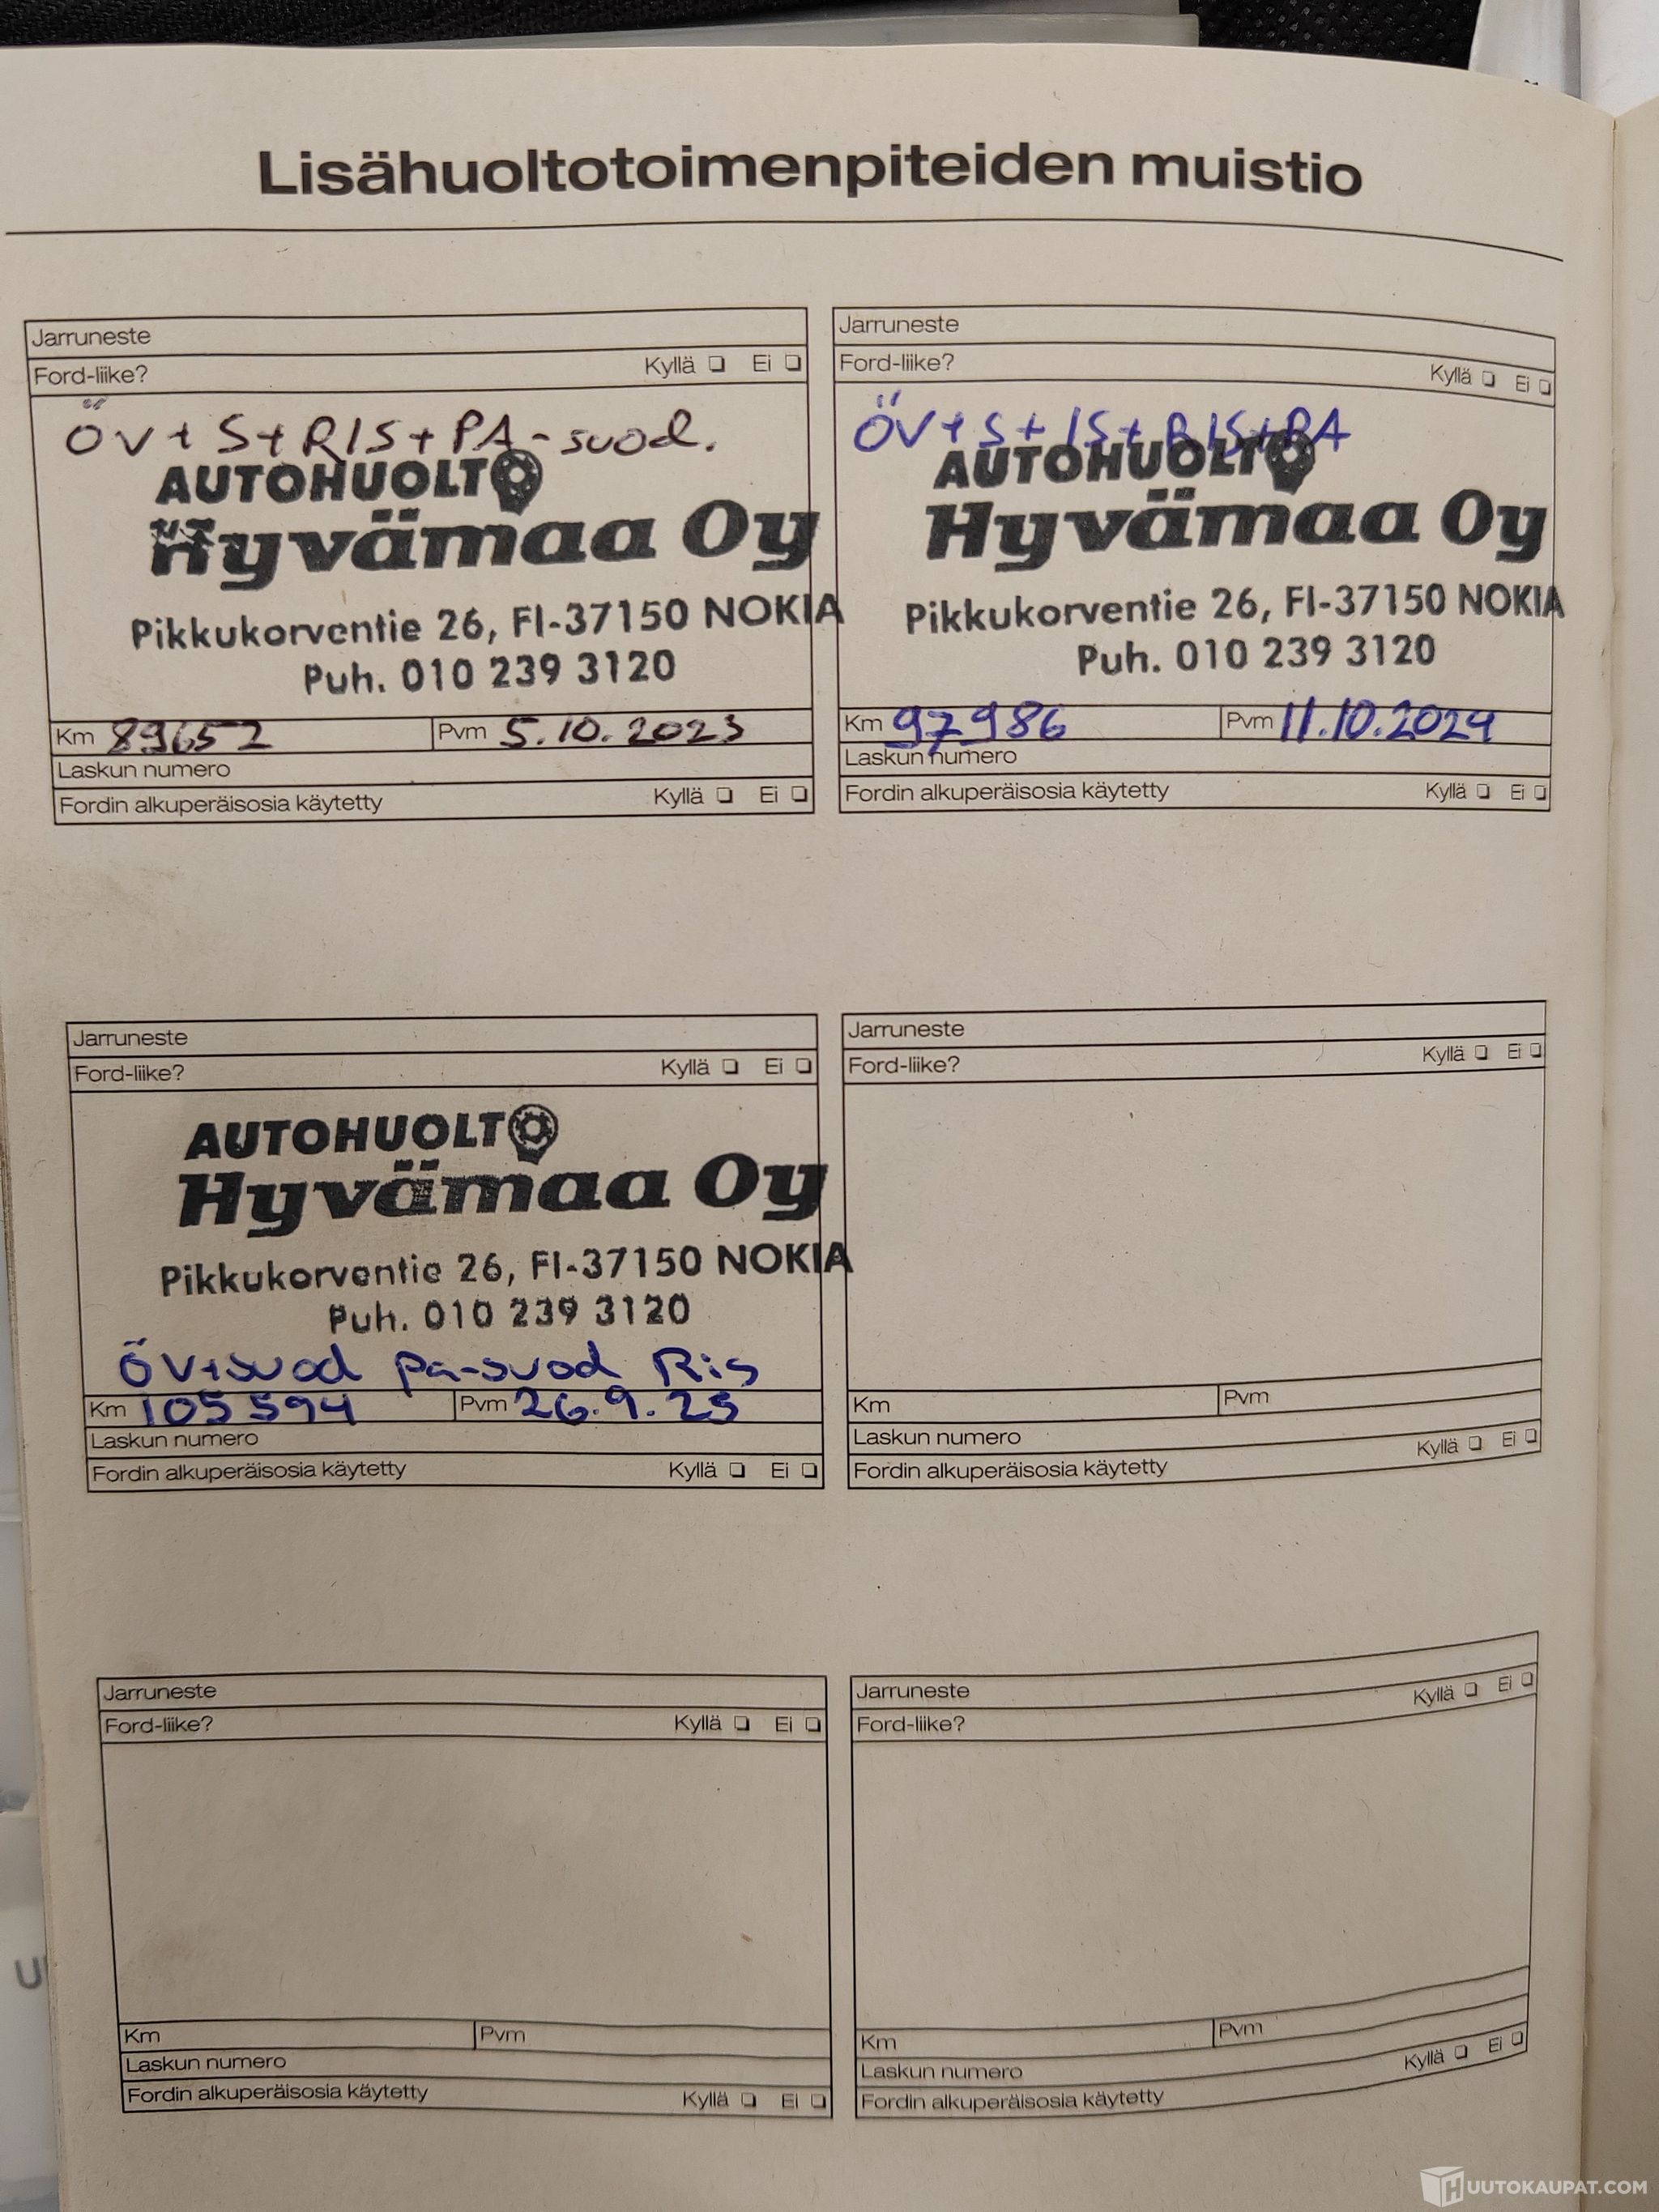 Lisähuoltotoimenpiteiden muistio
Jarruneste
Ford-liike? Kyllä Ei
ÖV+S+RIS+PA-suod.
AUTOHUOLTO
Hyvämaa Oy
Pikkukorventie 26, FI-37150 NOKIA
Puh. 010 239 3120
Km 89652 Pvm 5.10.2023
Laskun numero
Fordin alkuperäisosia käytetty Kyllä Ei
Jarruneste
Ford-liike? Kyllä Ei
ÖV+S+IS+RIS+PA
AUTOHUOLTO
Hyvämaa Oy
Pikkukorventie 26, FI-37150 NOKIA
Puh. 010 239 3120
Km 97986 Pvm 11.10.2024
Laskun numero
Fordin alkuperäisosia käytetty Kyllä Ei
Jarruneste
Ford-liike? Kyllä Ei
AUTOHUOLTO
Hyvämaa Oy
Pikkukorventie 26, FI-37150 NOKIA
Puh. 010 239 3120
ÖV+suod pa-suod Ris
Km 105594 Pvm 26.9.25
Laskun numero
Fordin alkuperäisosia käytetty Kyllä Ei
Jarruneste
Ford-liike? Kyllä Ei
Km Pvm
Laskun numero
Fordin alkuperäisosia käytetty Kyllä Ei
Jarruneste
Ford-liike? Kyllä Ei
Km Pvm
Laskun numero
Fordin alkuperäisosia käytetty Kyllä Ei
Jarruneste
Ford-liike? Kyllä Ei
Km Pvm
Laskun numero
Fordin alkuperäisosia käytetty Kyllä Ei
HUUTOKAUPAT.COM